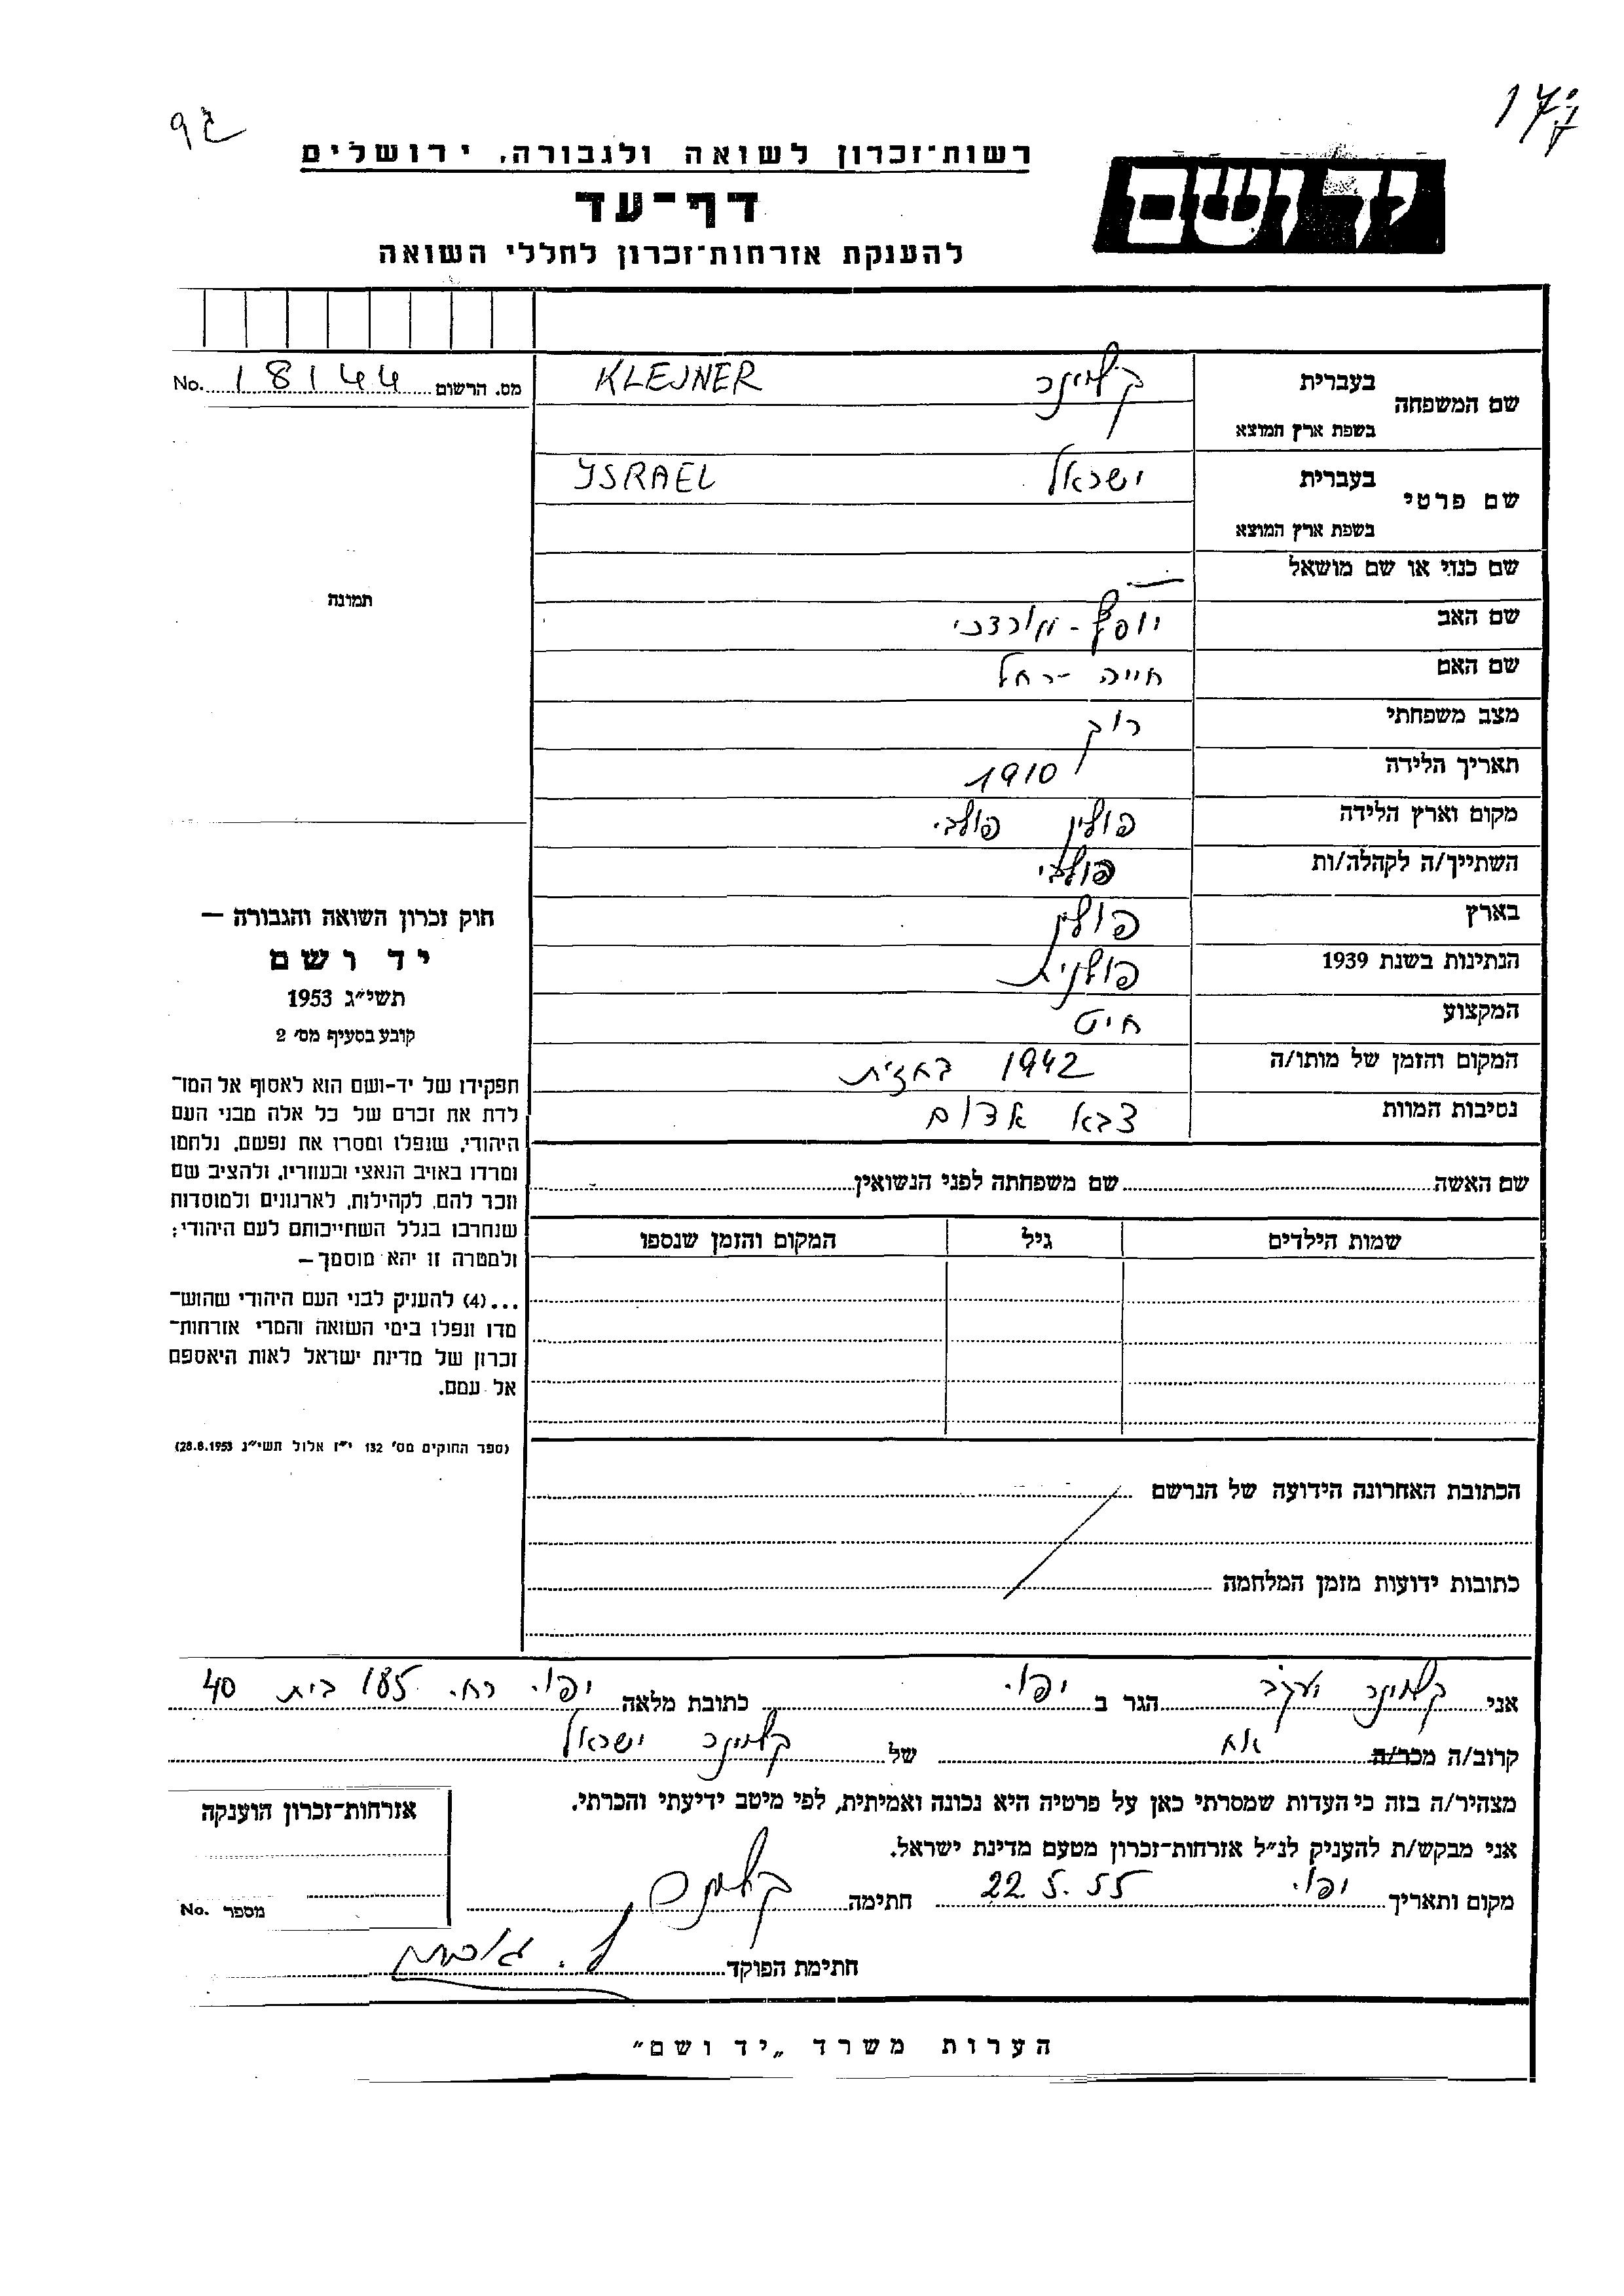 רשות־זכרון לשואה ולגבורה, ירושלים
יד ושם
דף־עד
להענקת אזרחות־זכרון לחללי השואה
מס. הרשום 18144 No.
בעברית קליינר KLEJNER
שם המשפחה
בשפת ארץ המוצא
בעברית ישראל YSRAEL
שם פרטי
בשפת ארץ המוצא
שם כנוי או שם מושאל —
שם האב יוסף - מורדכי
שם האם חייה - רחל
מצב משפחתי רוק
תאריך הלידה 1910
מקום וארץ הלידה פולין פולבי
השתייך/ה לקהלה/ות פולבי
בארץ פולין
הנתינות בשנת 1939 פולנית
המקצוע חיט
המקום והזמן של מותו/ה 1942 בחזית
נסיבות המוות צבא אדום
שם האשה שם משפחתה לפני הנשואין
שמות הילדים גיל המקום והזמן שנספו
הכתובת האחרונה הידועה של הנרשם
כתובות ידועות מזמן המלחמה
תמונה
חוק זכרון השואה והגבורה —
יד ושם
תשי״ג 1953
קובע בסעיף מס׳ 2
תפקידו של יד-ושם הוא לאסוף אל המו־
לדת את זכרם של כל אלה מבני העם
היהודי, שנפלו ומסרו את נפשם, נלחמו
ומרדו באויב הנאצי ובעוזריו, ולהציב שם
וזכר להם, לקהילות, לארגונים ולמוסדות
שנחרבו בגלל השתייכותם לעם היהודי;
ולמטרה זו יהא מוסמך—
...(4) להעניק לבני העם היהודי שהוש־
מדו ונפלו בימי השואה והמרי אזרחות־
זכרון של מדינת ישראל לאות היאספם
אל עמם.
(ספר החוקים מס׳ 132 י״ז אלול תשי״ג 28.8.1953)
אני קליינר יעקב הגר ב יפו. כתובת מלאה יפו. רח. 185 בית 40
קרוב/ה מכר/ה אח של קליינר ישראל
מצהיר/ה בזה כי העדות שמסרתי כאן על פרטיה היא נכונה ואמיתית, לפי מיטב ידיעתי והכרתי.
אני מבקש/ת להעניק לנ״ל אזרחות־זכרון מטעם מדינת ישראל.
מקום ותאריך יפו. 22.5.55 חתימה
חתימת הפוקד
אזרחות־זכרון הוענקה
מספר No.
הערות משרד „יד ושם״